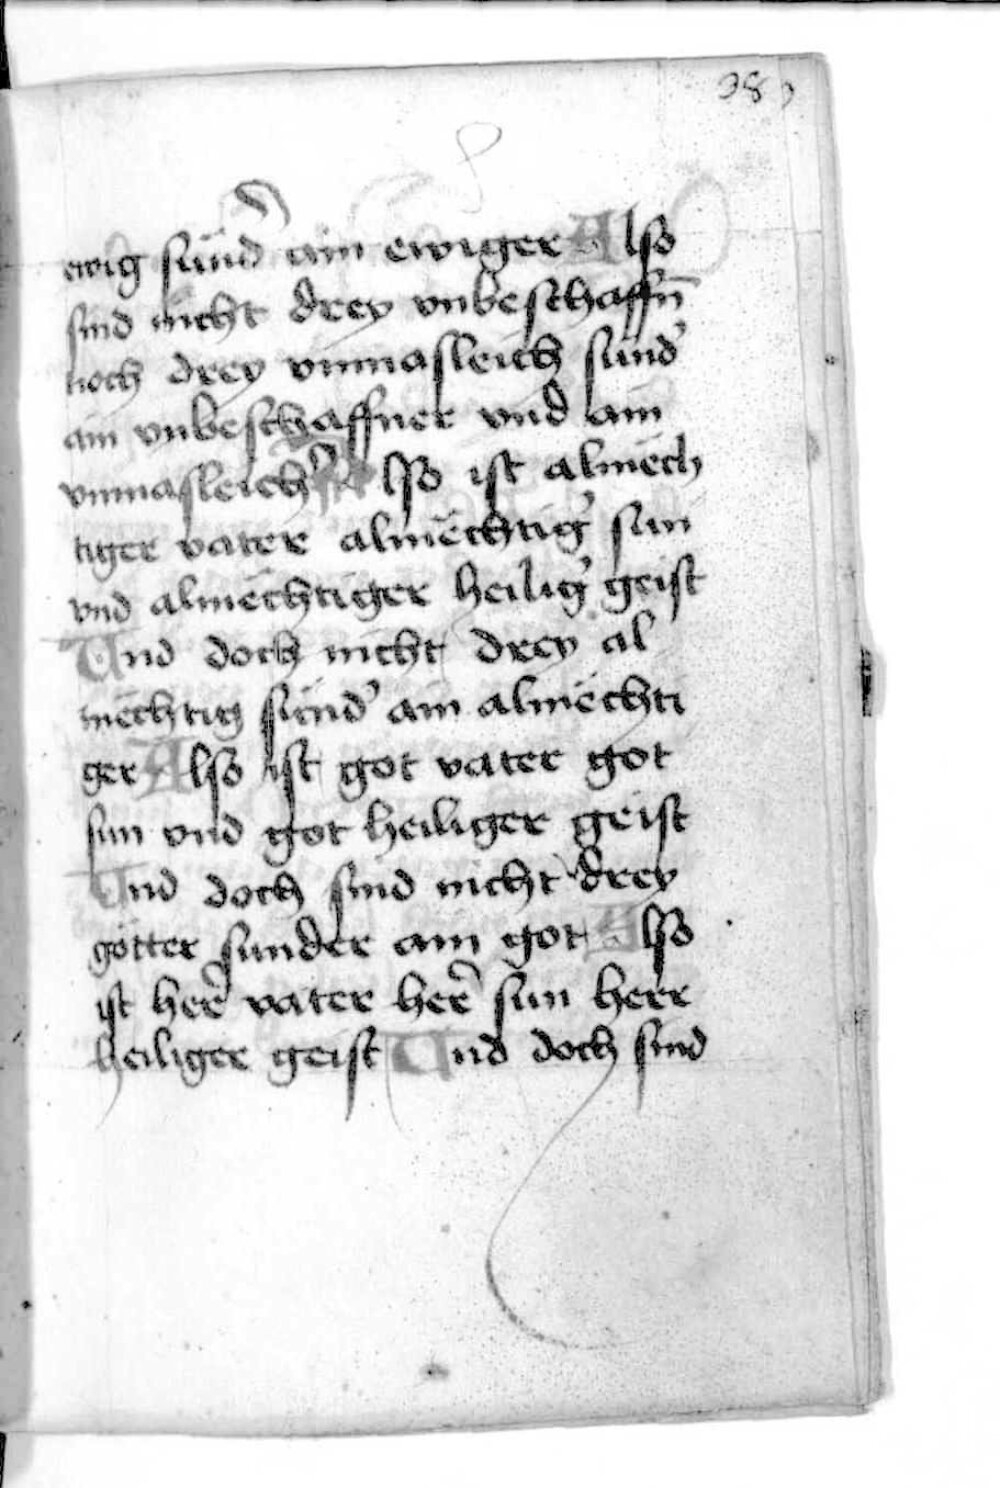 ewig sünd̕ ain ewiger Also
sind nicht drey vnbeschaffn̄
noch drey vnmasleich sünd̕
ain vnbeschaffner vnd ain
vnmasleich̕ Also ist almëch
tiger vater almëchtig̕ sun
vnd almëchtiger heilig̕ geist
Und doch nicht drey al
mëchtig sünd̕ ain almëchti
ger Also ist got vater got
sun vnd got heiliger geist
Und doch sind nicht drey
götter sunder ain got Also
ist her̕ vater her̕ sun herr
heiliger geist Und doch sind